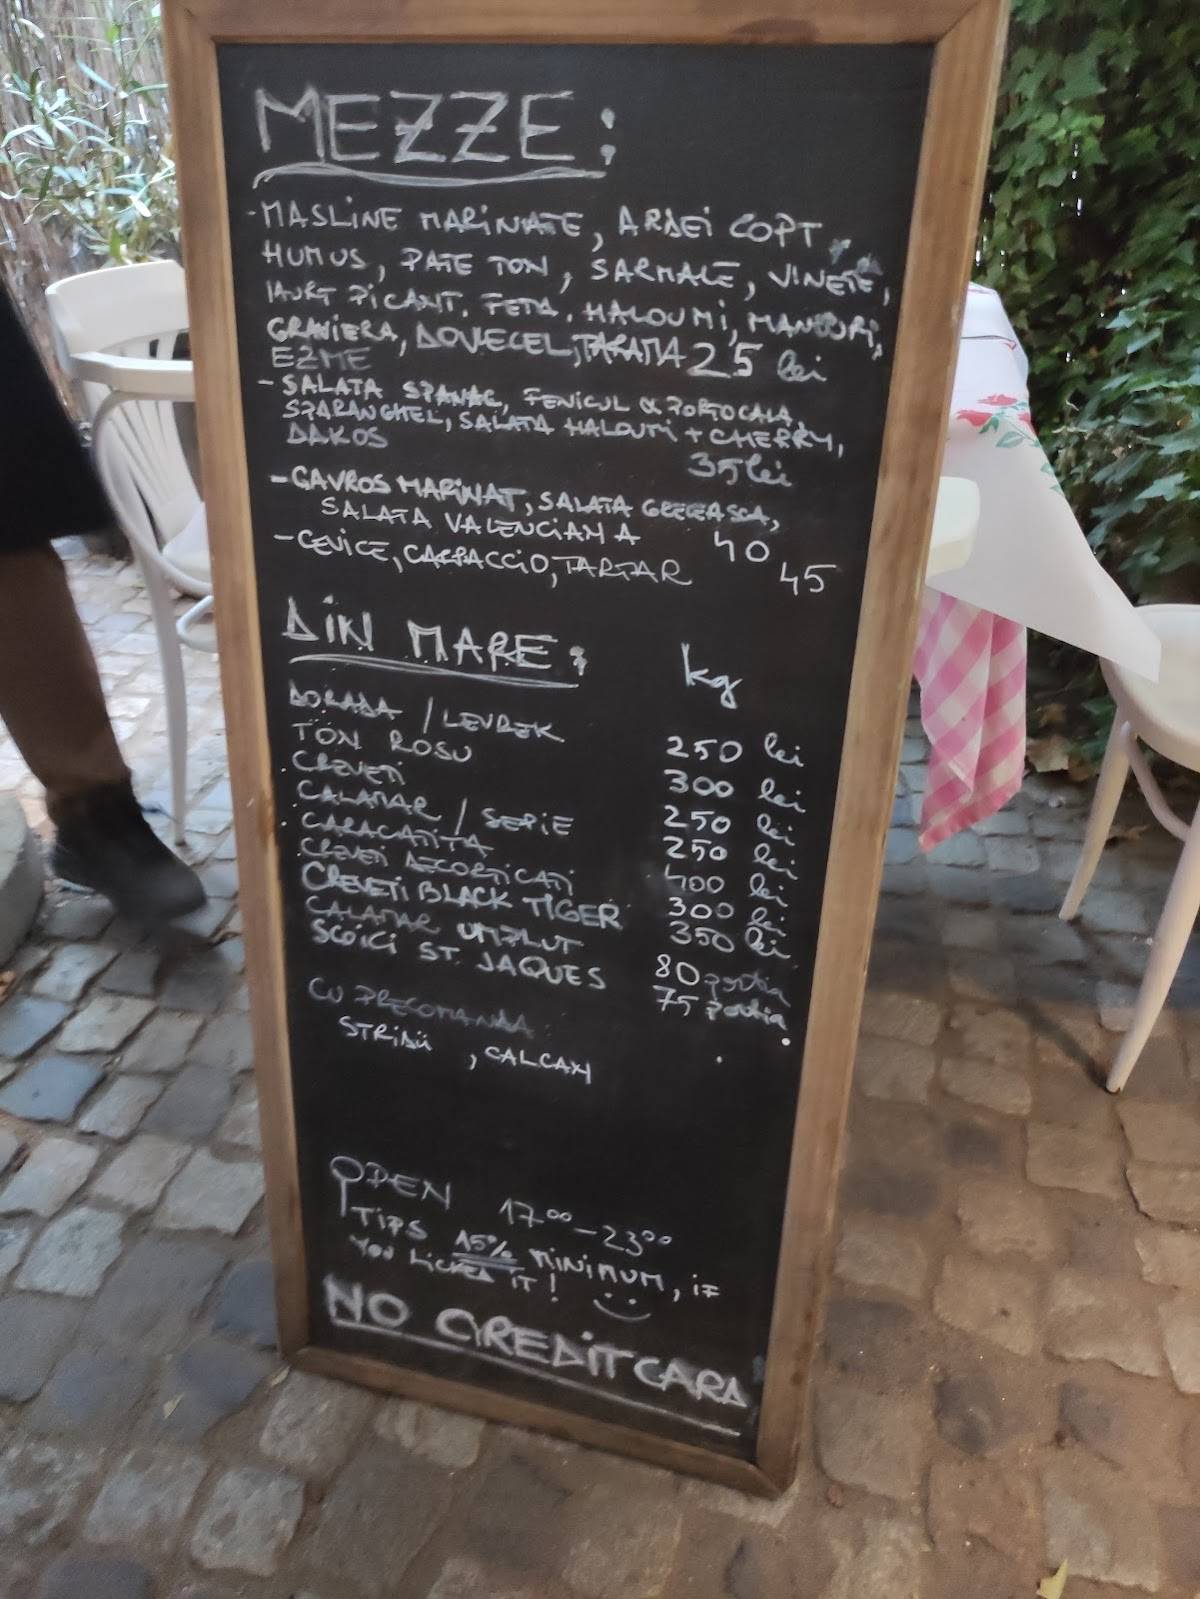 MEZZE:
- MASLINE MARINATE, ARDEI COPT,
HUMUS, PATE TON, SARMALE, VINETE,
IAURT PICANT. FETA, HALOUMI, MANOURI,
GRAVIERA, DOVLECEL, TARAMA 25 lei
EZME
- SALATA SPANAC, FENICUL & PORTOCALA,
SPARANGHEL, SALATA HALOUMI + CHERRY,
DAKOS 35 lei
- GAVROS MARINAT, SALATA GRECEASCA,
SALATA VALENCIANA 40
- CEVICE, CARPACCIO, TARTAR 45
DIN MARE: kg
DORADA / LEVREK 250 lei
TON ROSU 300 lei
CREVETI 250 lei
CALAMAR / SEPIE 250 lei
CARACATITA 400 lei
CREVETI DECORTICATI 300 lei
CREVETI BLACK TIGER 350 lei
CALAMAR UMPLUT 80 portia
SCOICI ST. JAQUES 75 portia
CU PRECOMANDA
STRIDII, CALCAN
OPEN 17⁰⁰ - 23⁰⁰
TIPS 15% MINIMUM, IF
YOU LICKED IT!
NO CREDIT CARD